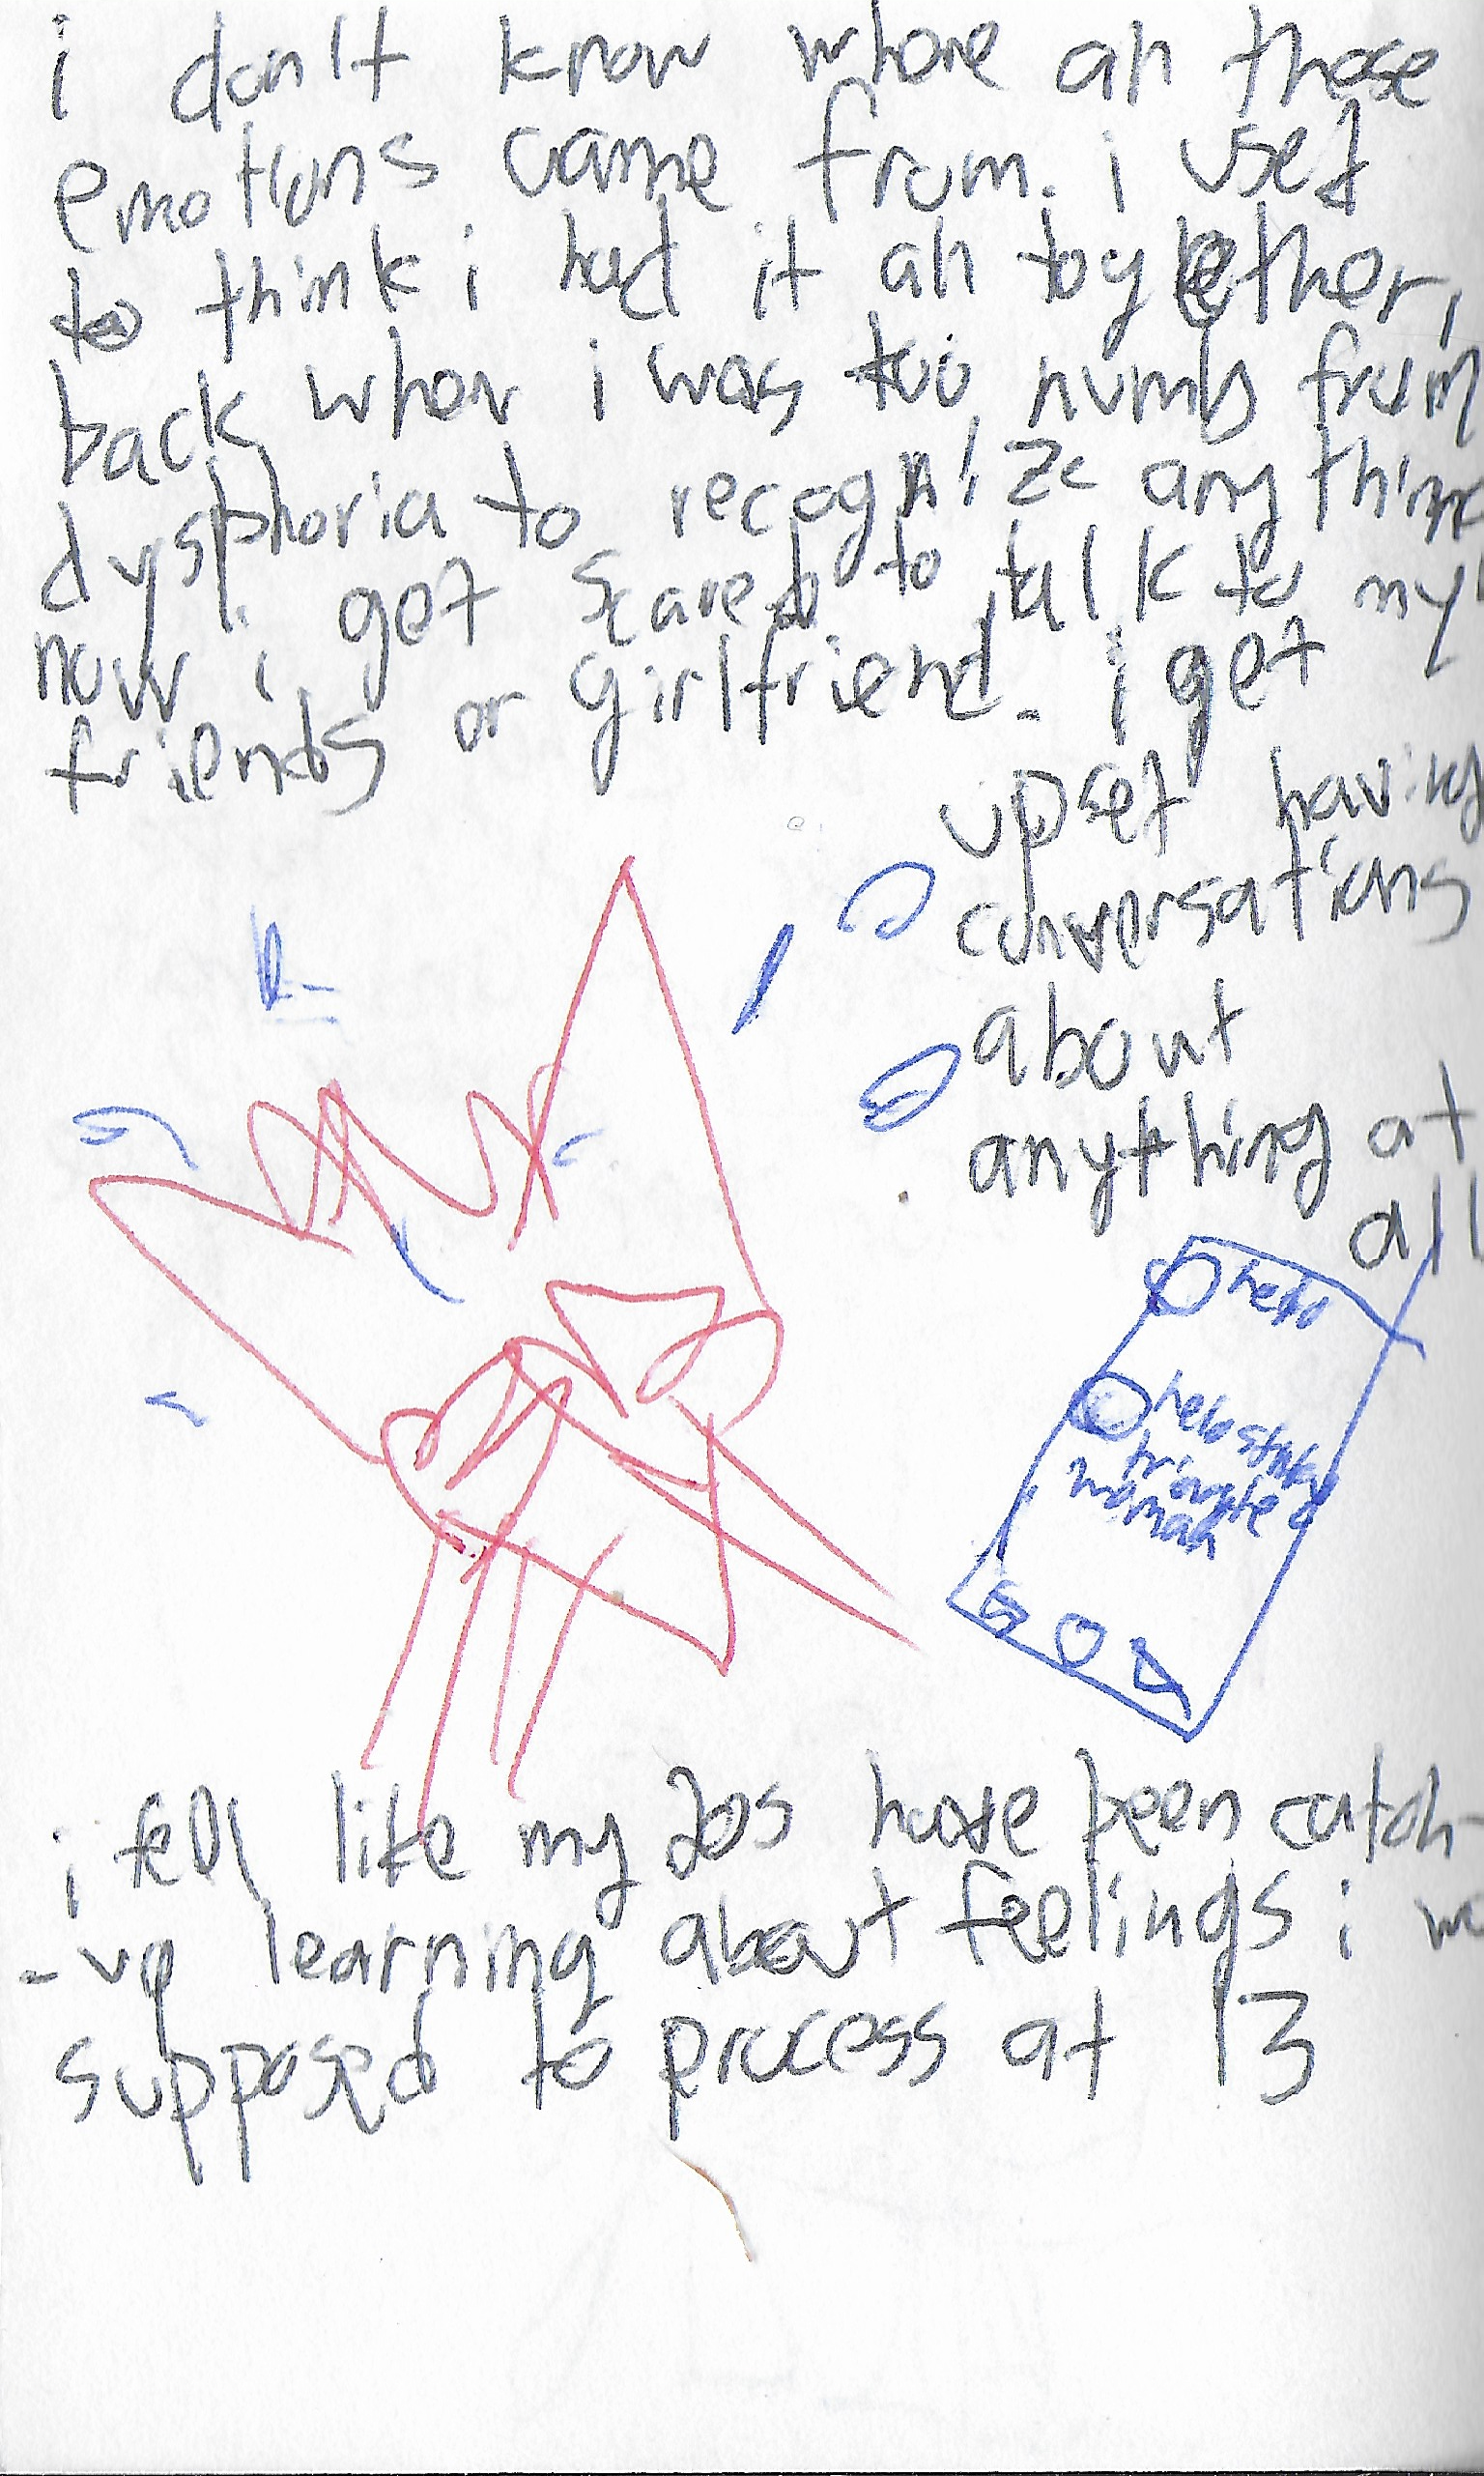 i don't know where all these
emotions came from. i used
to think i had it all together,
back when i was too numb from
dysphoria to recognize anything
now i get scared to talk to my
friends or girlfriend. i get
upset having
conversations
about
anything at
all
hello
hello
triangle
woman
i feel like my 20s have been catch-
-up learning about feelings i
supposed to process at 13